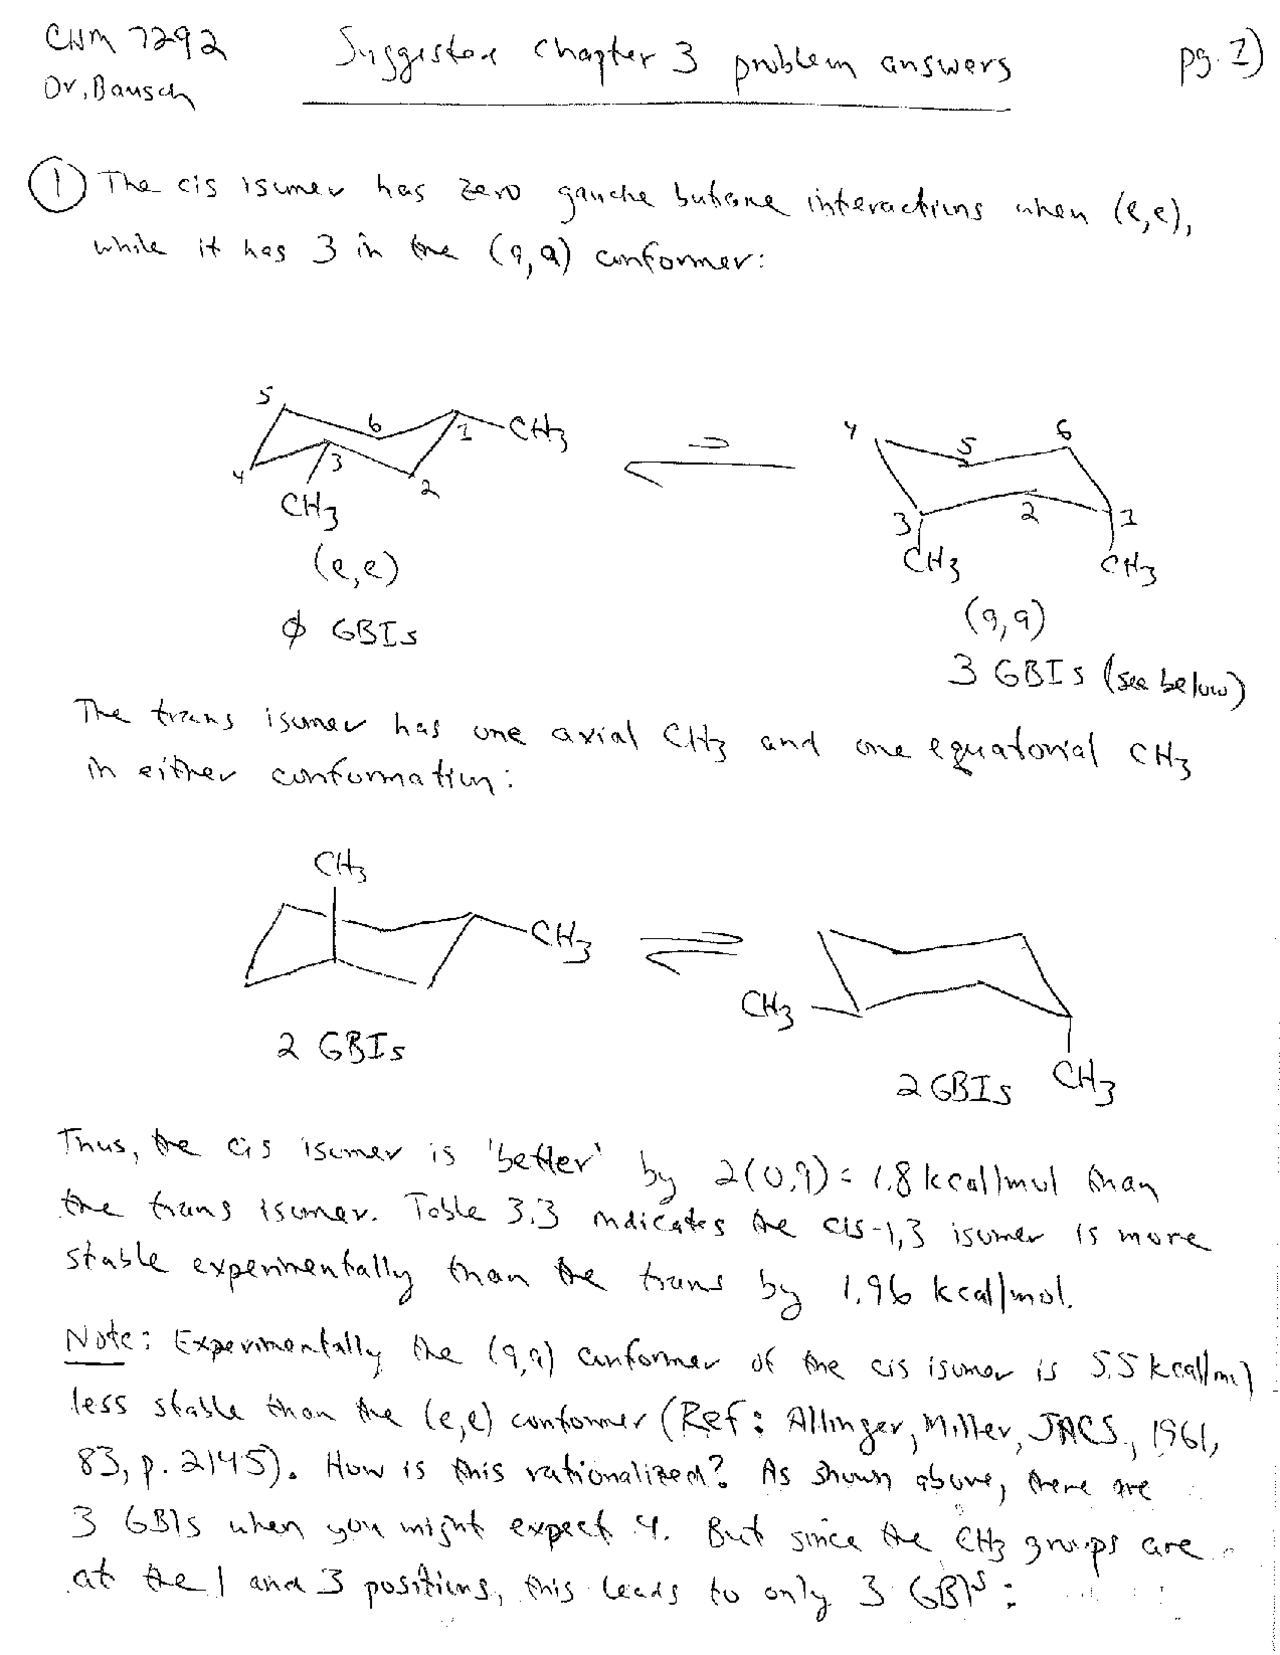 CHM 7292
Suggested chapter 3 problem answers
pg. 1)
Dr. Bausch
1 The cis isomer has zero gauche butane interactions when (e,e),
while it has 3 in the (a,a) conformer:
5
6
1
CH3
4
3
2
CH3
(e,e)
∅ GBIs
4
5
6
3
2
1
CH3
CH3
(a,a)
3 GBIs (see below)
The trans isomer has one axial CH3 and one equatorial CH3
in either conformation:
CH3
CH3
2 GBIs
CH3
CH3
2 GBIs
Thus, the cis isomer is 'better' by 2(0.9) = 1.8 kcal/mol than
the trans isomer. Table 3.3 indicates the cis-1,3 isomer is more
stable experimentally than the trans by 1.96 kcal/mol.
Note: Experimentally the (a,a) conformer of the cis isomer is 5.5 kcal/mol
less stable than the (e,e) conformer (Ref: Allinger, Miller, JACS, 1961,
83, p. 2145). How is this rationalized? As shown above, there are
3 GBIs when you might expect 4. But since the CH3 groups are
at the 1 and 3 positions, this leads to only 3 GBIs: